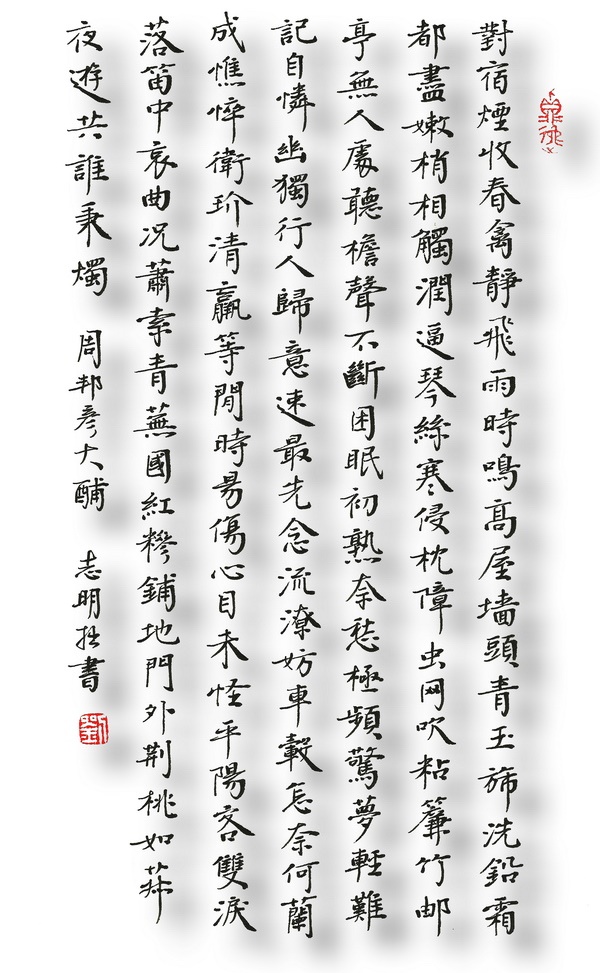 對宿煙收春禽靜飛雨時鳴高屋墻頭青玉旆洗鉛霜
都盡嫩梢相觸潤逼琴絲寒侵枕障虫网吹粘簾竹邮
亭無人處聽檐聲不斷困眠初熟奈愁極頻驚夢輕難
記自憐幽獨行人歸意速最先念流潦妨車轂怎奈何蘭
成憔悴衛玠清羸等閒時易傷心目未怪平陽客雙淚
落笛中哀曲况蕭索青蕪國紅糝鋪地門外荆桃如菽
夜遊共誰秉燭 周邦彥大酺 志明拙書
劉